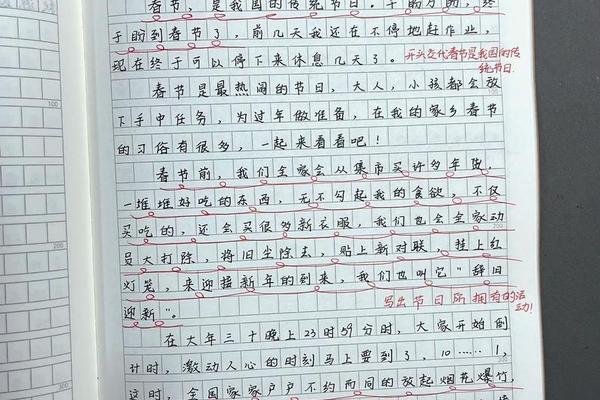 春节，是我国的传统节日。千盼万盼，终
于盼到春节了，前几天我还在不停地赶作业，
现在终于可以停下来休息几天了。
开头交代春节是我国的传
统节日.
春节是最热闹的节日，大人，小孩都会放
下手中任务，为过年做准备，在我的家乡春节
的习俗有很多，一起来看看吧！
春节前，我们全家会从集市买许多年货，
一堆堆好吃的东西，无不勾起我的食欲，不仅
买吃的，还会买很多新衣服，我们也会全家动
员大打除，将旧尘除去，贴上新对联，挂上红
灯笼，来迎接新年的到来，我们也叫它"辞旧
迎新"。
写出节日所拥有的活
动!
在大年三十晚上23时59分时，大家开始倒
计时，激动人心的时刻马上要到了，10……1，
这时，全国家家户户不约而同的放起烟花爆竹，
100
200
300